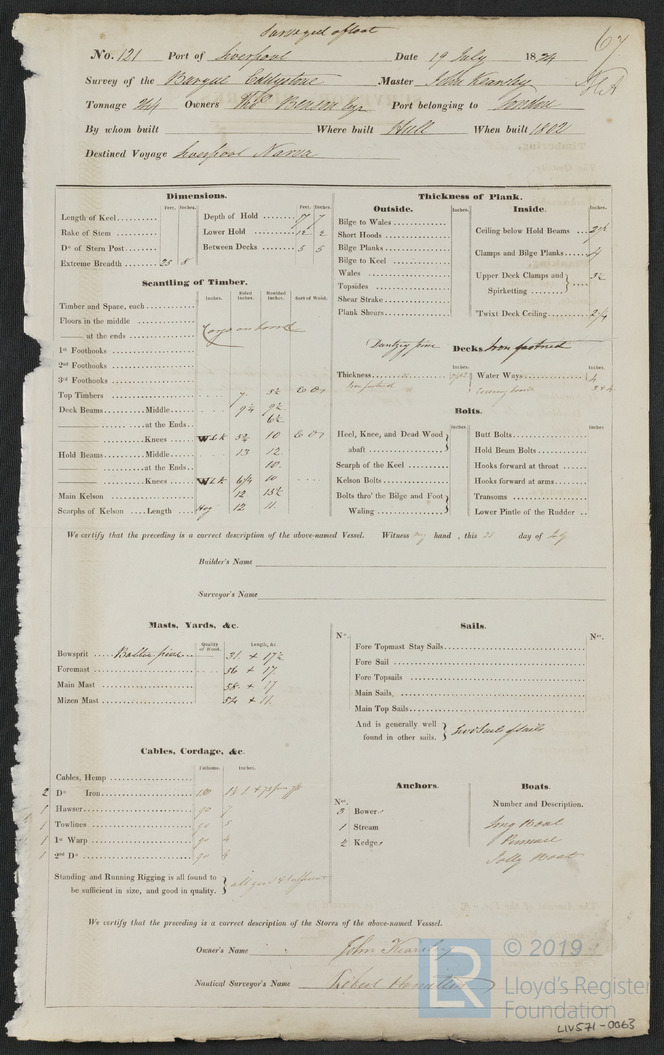 Surveyed afloat
67
No. 121 Port of Liverpool Date 19 July 1824
Survey of the Barque Eddystone Master John Kearsley
Tonnage 244 Owners Thos Benson Esqr Port belonging to London
By whom built Where built Hull When built 1802
Destined Voyage Liverpool Narva
Dimensions.
Feet. Inches. Feet. Inches.
Length of Keel Depth of Hold 7 7
Rake of Stem Lower Hold 12 2
Do of Stern Post Between Decks 5 5
Extreme Breadth 25 8
Scantling of Timber.
Inches. Sided Inches. Moulded Inches. Sort of Wood.
Timber and Space, each
Floors in the middle
—— at the ends
Cargo on board
1st Foothooks
2nd Foothooks
3rd Foothooks
Top Timbers 7 5½
Deck Beams Middle 9¼ 9½
—— at the Ends 6½
—— Knees 5¾ 10
Hold Beams Middle 13 12
—— at the Ends 10
—— Knees 6¼ 10
Main Kelson 12 13½
Scarphs of Kelson Length 12 11
Thickness of Plank.
Outside. Inches.
Bilge to Wales
Short Hoods
Bilge Planks
Bilge to Keel
Wales
Topsides
Shear Strake
Plank Shears
Inside. Inches.
Ceiling below Hold Beams 2½
Clamps and Bilge Planks 4
Upper Deck Clamps and
Spirketting 3½
'Twixt Deck Ceiling 2¼
Dantzig pine Decks Iron fastened
Inches. Inches.
Thickness Water Ways 4
Iron fastened
Bolts.
Inches. Inches
Heel, Knee, and Dead Wood
abaft
Scarph of the Keel
Kelson Bolts
Bolts thro' the Bilge and Foot
Waling
Butt Bolts
Hold Beam Bolts
Hooks forward at throat
Hooks forward at arms
Transoms
Lower Pintle of the Rudder
We certify that the preceding is a correct description of the above-named Vessel. Witness my hand, this 21 day of July
Builder's Name
Surveyor's Name
Masts, Yards, &c.
Quality of Wood. Length, &c.
Bowsprit Baltic pine 31 + 17½
Foremast 56 + 17
Main Mast 58 + 17
Mizen Mast 54 + 11
Sails.
No. No.
Fore Topmast Stay Sails
Fore Sail
Fore Topsails
Main Sails
Main Top Sails
And is generally well
found in other sails. Two Suits of Sails
Cables, Cordage, &c.
Fathoms. Inches.
Cables, Hemp
2 Do Iron
1 Hawser 90 7
1 Towlines 90 5
1 1st Warp 90 4
1 2nd Do 90 4
Standing and Running Rigging is all found to
be sufficient in size, and good in quality. all good & sufficient
Anchors. Boats.
No. Number and Description.
3 Bower Long Boat
1 Stream Pinnace
2 Kedge Jolly Boat
We certify that the preceding is a correct description of the Stores of the above-named Vesssel.
Owner's Name John Kearsley
Nautical Surveyor's Name Robert Hamilton
LR
© 2019
Lloyd's Register
Foundation
LIV571-0063